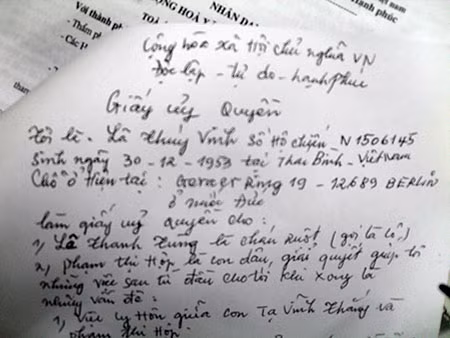 NHÂN DA
Với thành p
- Thẩm p
- Các
ham
phúc
Cộng hòa xã Hội chủ nghĩa VN
Độc lập - Tự do - hạnh phúc
Giấy uỷ Quyền
Tôi là - Lã Thúy Vinh Số Hộ chiếu - N1506145
Sinh ngày 30 - 12 - 1953 tại Thái Bình - Việt Nam
Chỗ ở Hiện tại : Geraer Ring 19 - 12689 BERLIN
ở nước Đức
làm giấy uỷ quyền cho :
1, Lã Thanh Tùng là cháu ruột (gọi là cô)
2, phạm thị Hộp là con dâu, giải quyết giúp tôi
những việc sau từ đầu cho tới khi xong là
những vấn đề :
1, Việc ly Hôn giữa con Tạ Vĩnh Thắng và
phạm thị Hộp